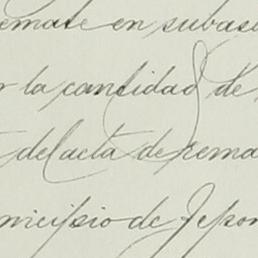 remate en subas
r la cantidad de
del acta de rema
nicipio de Jepon